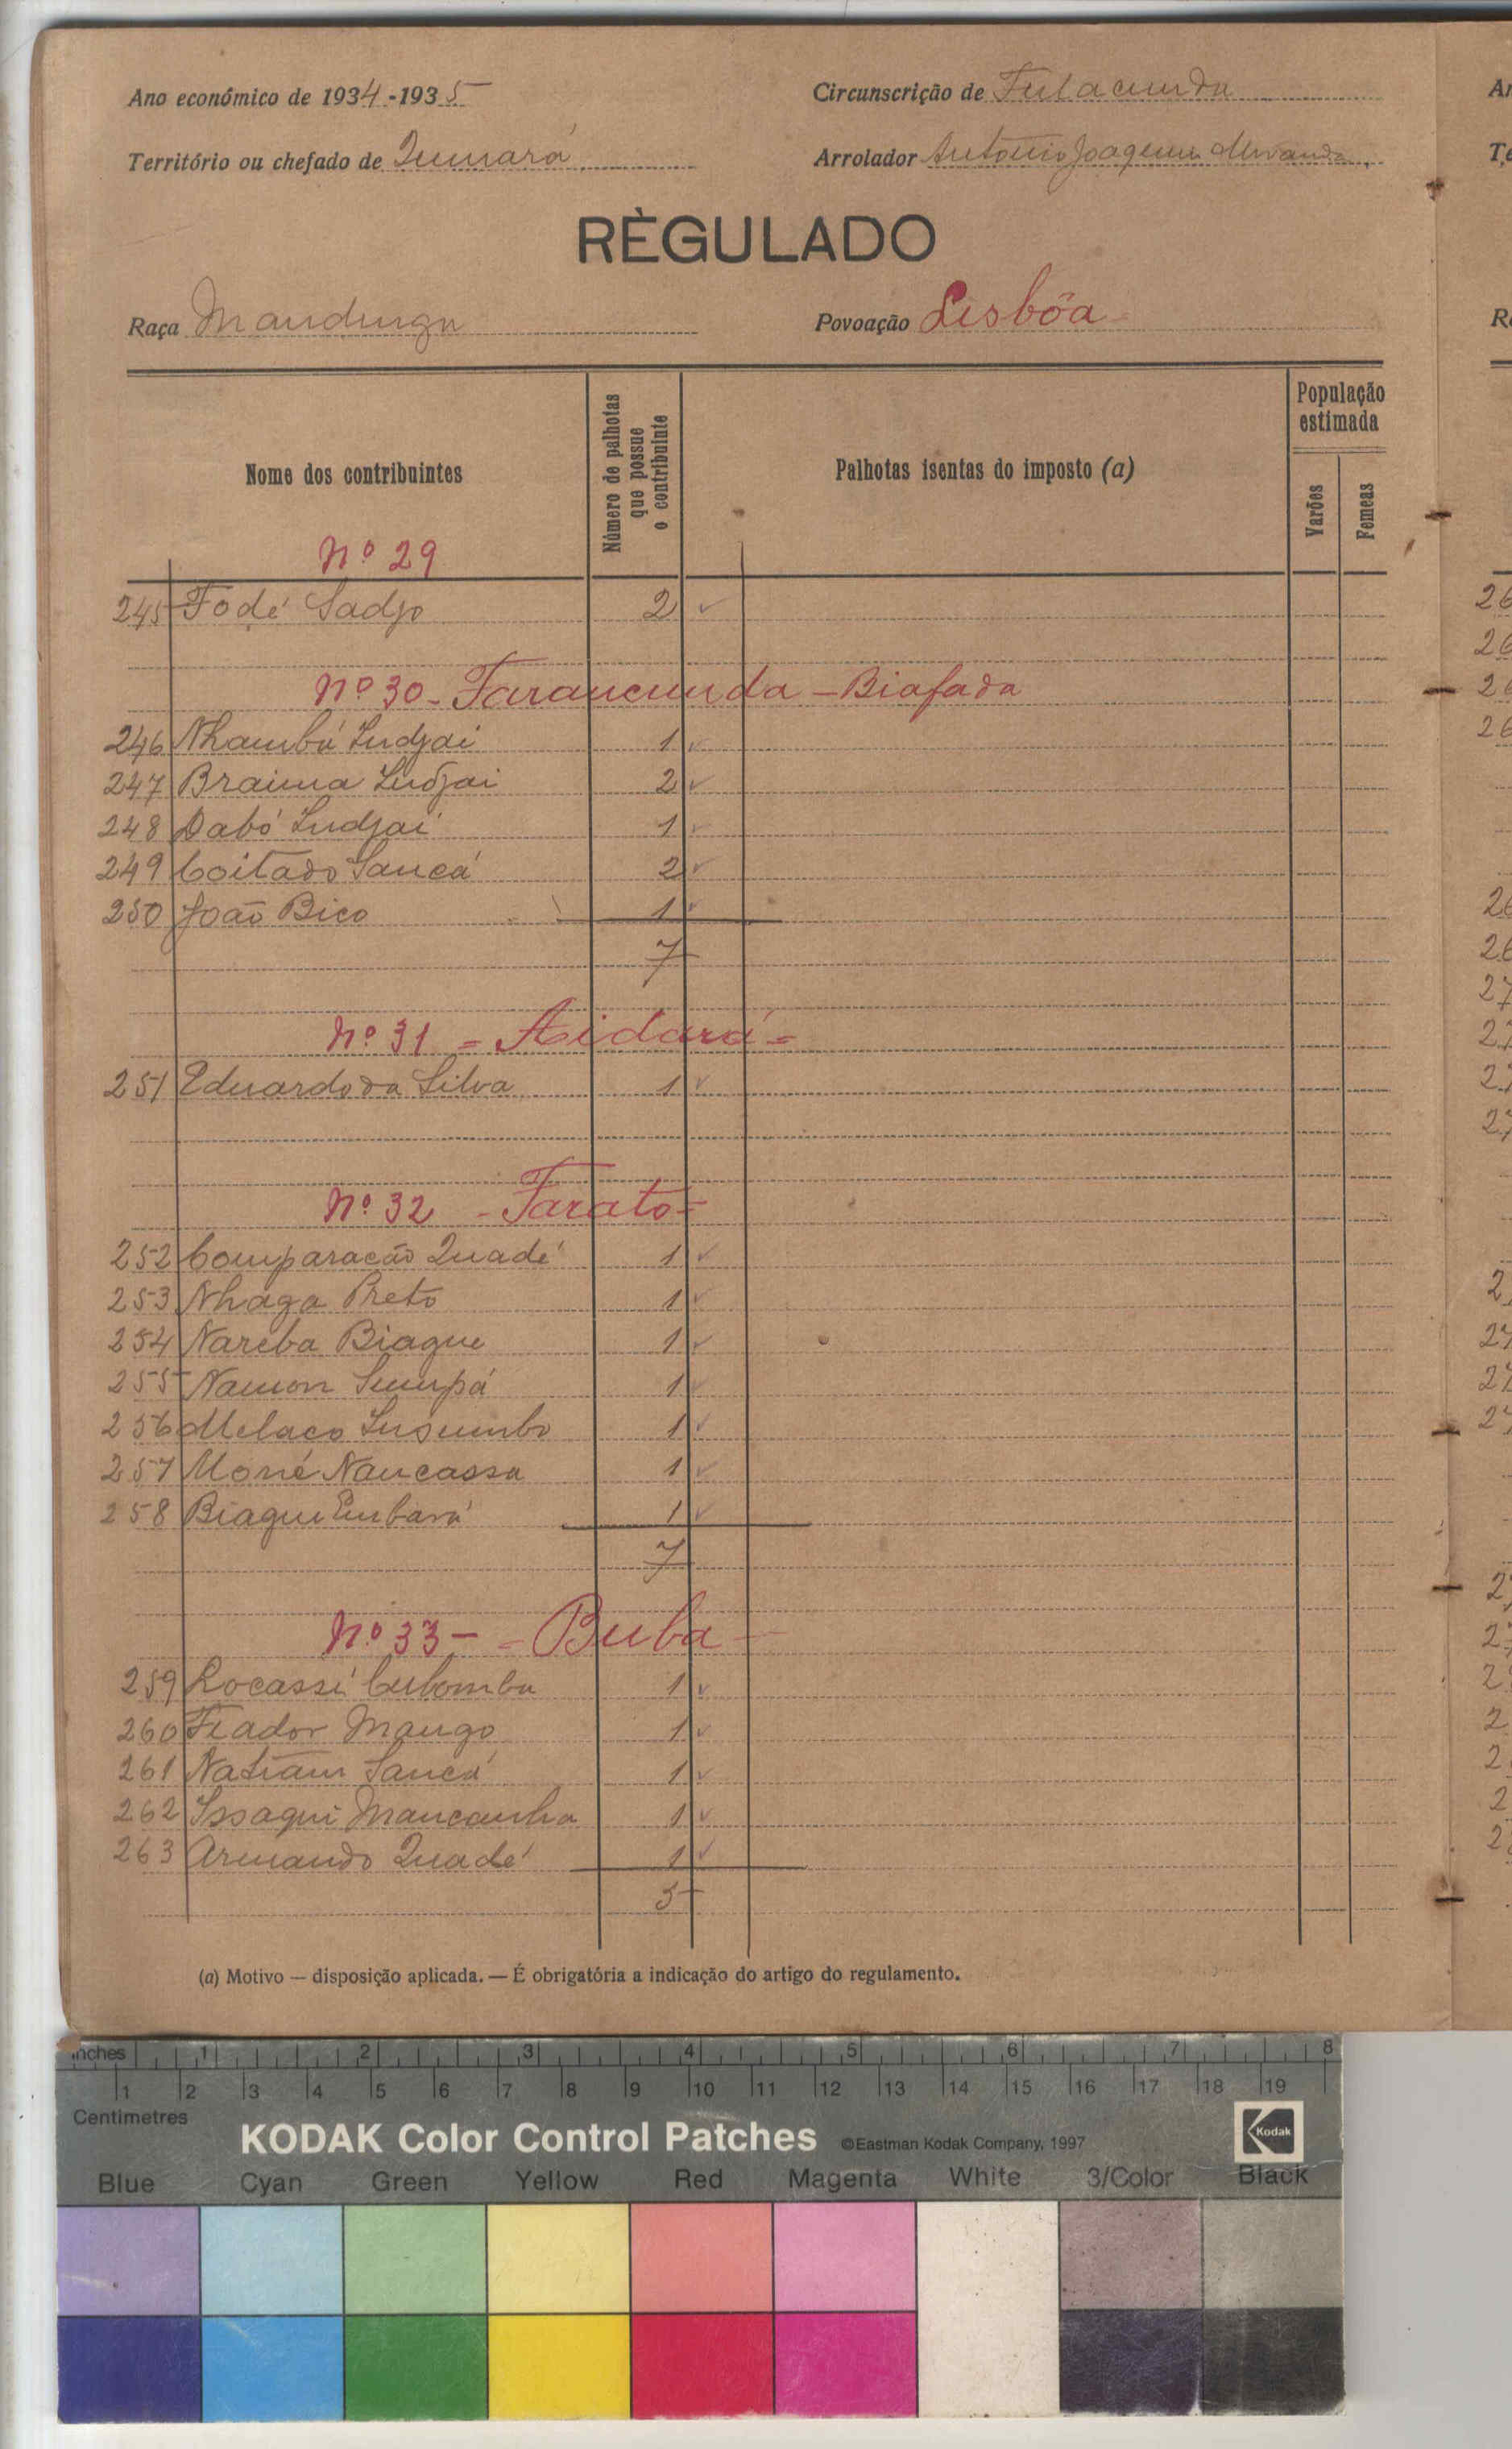 Ano económico de 1934-1935
Circunscrição de Fulacunda
Território ou chefado de Quinara
Arrolador António Joaquim Miranda
RÈGULADO
Raça Mandinga
Povoação Lisbôa
Nome dos contribuintes
Número de palhotas que possue o contribuinte
Palhotas isentas do imposto (a)
População estimada
Varões
Femeas
Nº 29
245 Fodé Sadjo 2
Nº 30 - Farancunda - Biafada
246 Nhambú Indjai 1
247 Braima Indjai 2
248 Dabó Indjai 1
249 Coitado Sancá 2
250 João Bico 1
7
Nº 31 = Aidará =
251 Eduardo da Silva 1
Nº 32 - Farato =
252 Comparacão Quadé 1
253 Nhaga Preto 1
254 Nareba Biague 1
255 Namon 1
256 1
257 Nancassa 1
258 Biague Embaná 1
7
Nº 33 - - Buba -
259 Locassi Cubomba 1
260 Fiador Mango 1
261 Sancá 1
262 Issaqui Mancanha 1
263 Armando Quadé 1
5
(a) Motivo — disposição aplicada. — É obrigatória a indicação do artigo do regulamento.
inches 1 2 3 4 5 6 7 8
1 2 3 4 5 6 7 8 9 10 11 12 13 14 15 16 17 18 19
Centimetres
KODAK Color Control Patches ©Eastman Kodak Company, 1997 Kodak
Blue Cyan Green Yellow Red Magenta White 3/Color Black